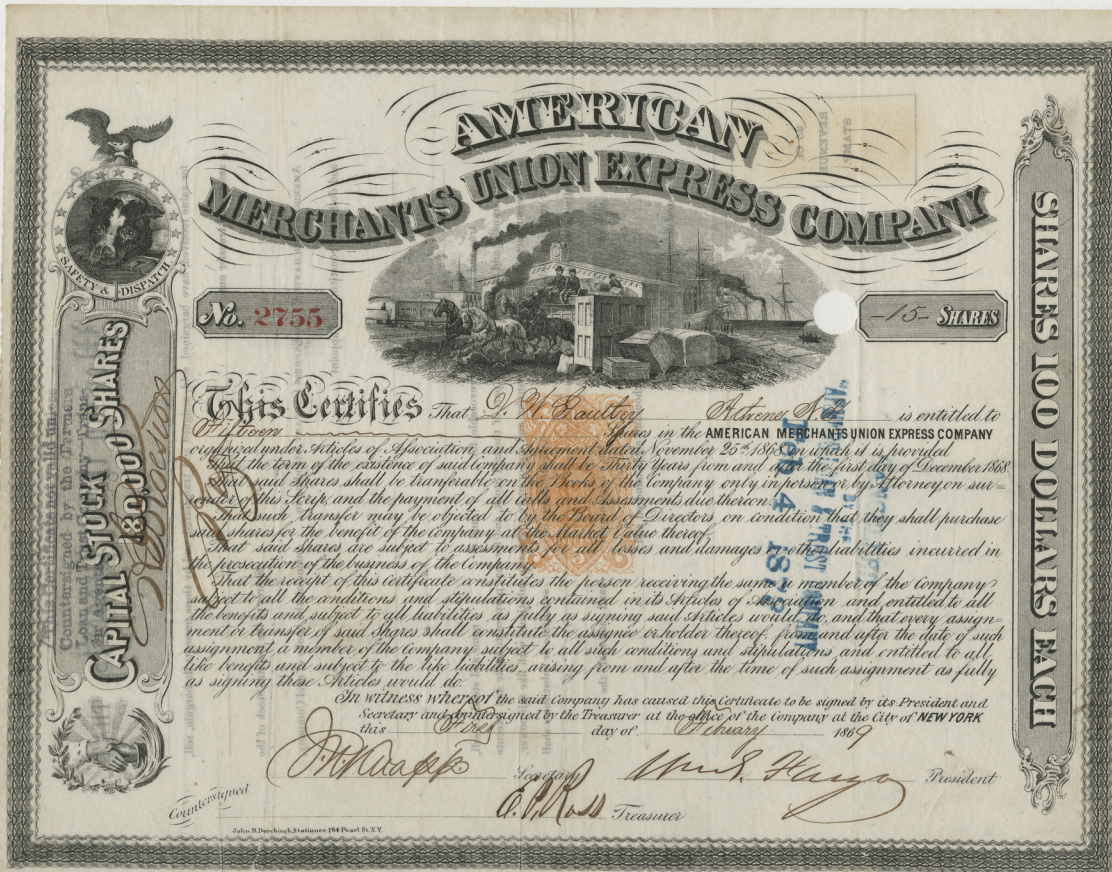 AMERICAN
MERCHANTS UNION EXPRESS COMPANY
SAFETY & DISPATCH
No. 2755
-15- SHARES
CAPITAL STOCK 180,000 SHARES
SHARES 100 DOLLARS EACH
This Certificate not valid unless
Countersigned by the Farmers
Loan and Trust Company
This Certifies That is entitled to
Fifteen Shares in the AMERICAN MERCHANTS UNION EXPRESS COMPANY
organized under Articles of Association and Agreement dated November 25th 1868, in which it is provided
That the term of the existence of said company shall be Thirty Years from and after the first day of December 1868.
That said Shares shall be tranferable on the Books of the Company only in person or by Attorney on sur-
render of this Scrip, and the payment of all calls and Assessments due thereon.
That such transfer may be objected to by the Board of Directors, on condition that they shall purchase
said shares for the benefit of the company at the Market Value thereof.
That said shares are subject to assessments for all losses and damages or other liabilities incurred in
the prosecution of the business of the Company
That the receipt of this Certificate constitutes the person receiving the same a member of the Company
subject to all the conditions and stipulations contained in its Articles of Association and entitled to all
the benefits and subject to all liabilities as fully as signing said Articles would do, and that every assign-
ment or transfer of said Shares shall constitute the assignee or holder thereof, from and after the date of such
assignment a member of the Company subject to all such conditions and stipulations and entitled to all
like benefits and subject to the like liabilities, arising from and after the time of such assignment as fully
as signing these Articles would do.
In witness whereof the said Company has caused this Certificate to be signed by its President and
Secretary and countersigned by the Treasurer at the office of the Company at the City of NEW YORK
this First day of February 1869
J. N. Knapp Secretary Wm G. Fargo President
Countersigned E. P. Ross Treasurer
John H. Duyckinck, Stationer 164 Pearl St. N.Y.